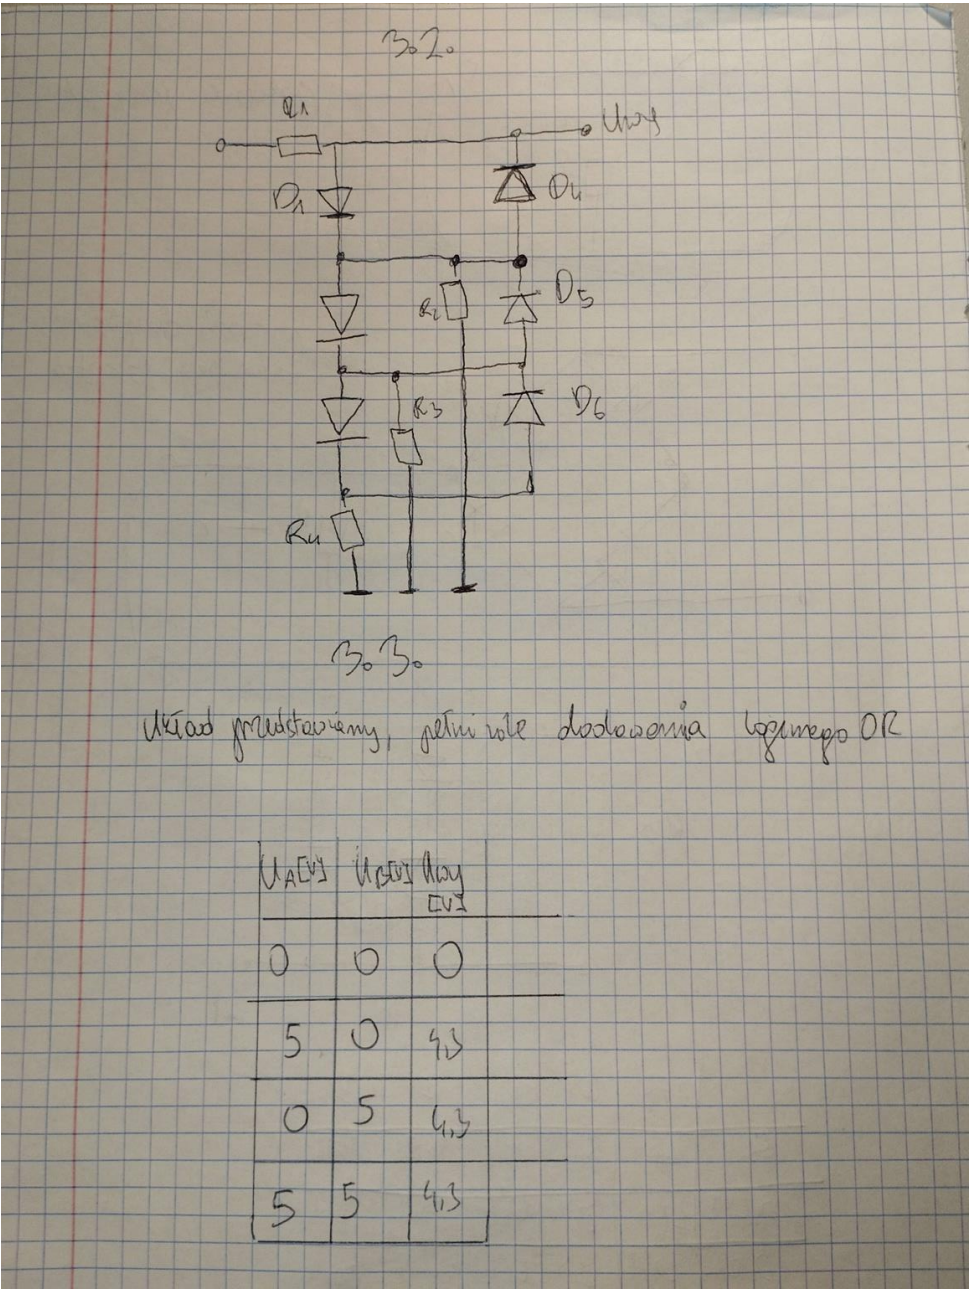 3.2.
R1
Uwy
D1
D4
R2
D5
R3
D6
R4
3.3.
Układ przedstawiony, pełni role dodawania logicznego OR
UA[V] UB[V] Uwy [V]
0 0 0
5 0 4,3
0 5 4,3
5 5 4,3